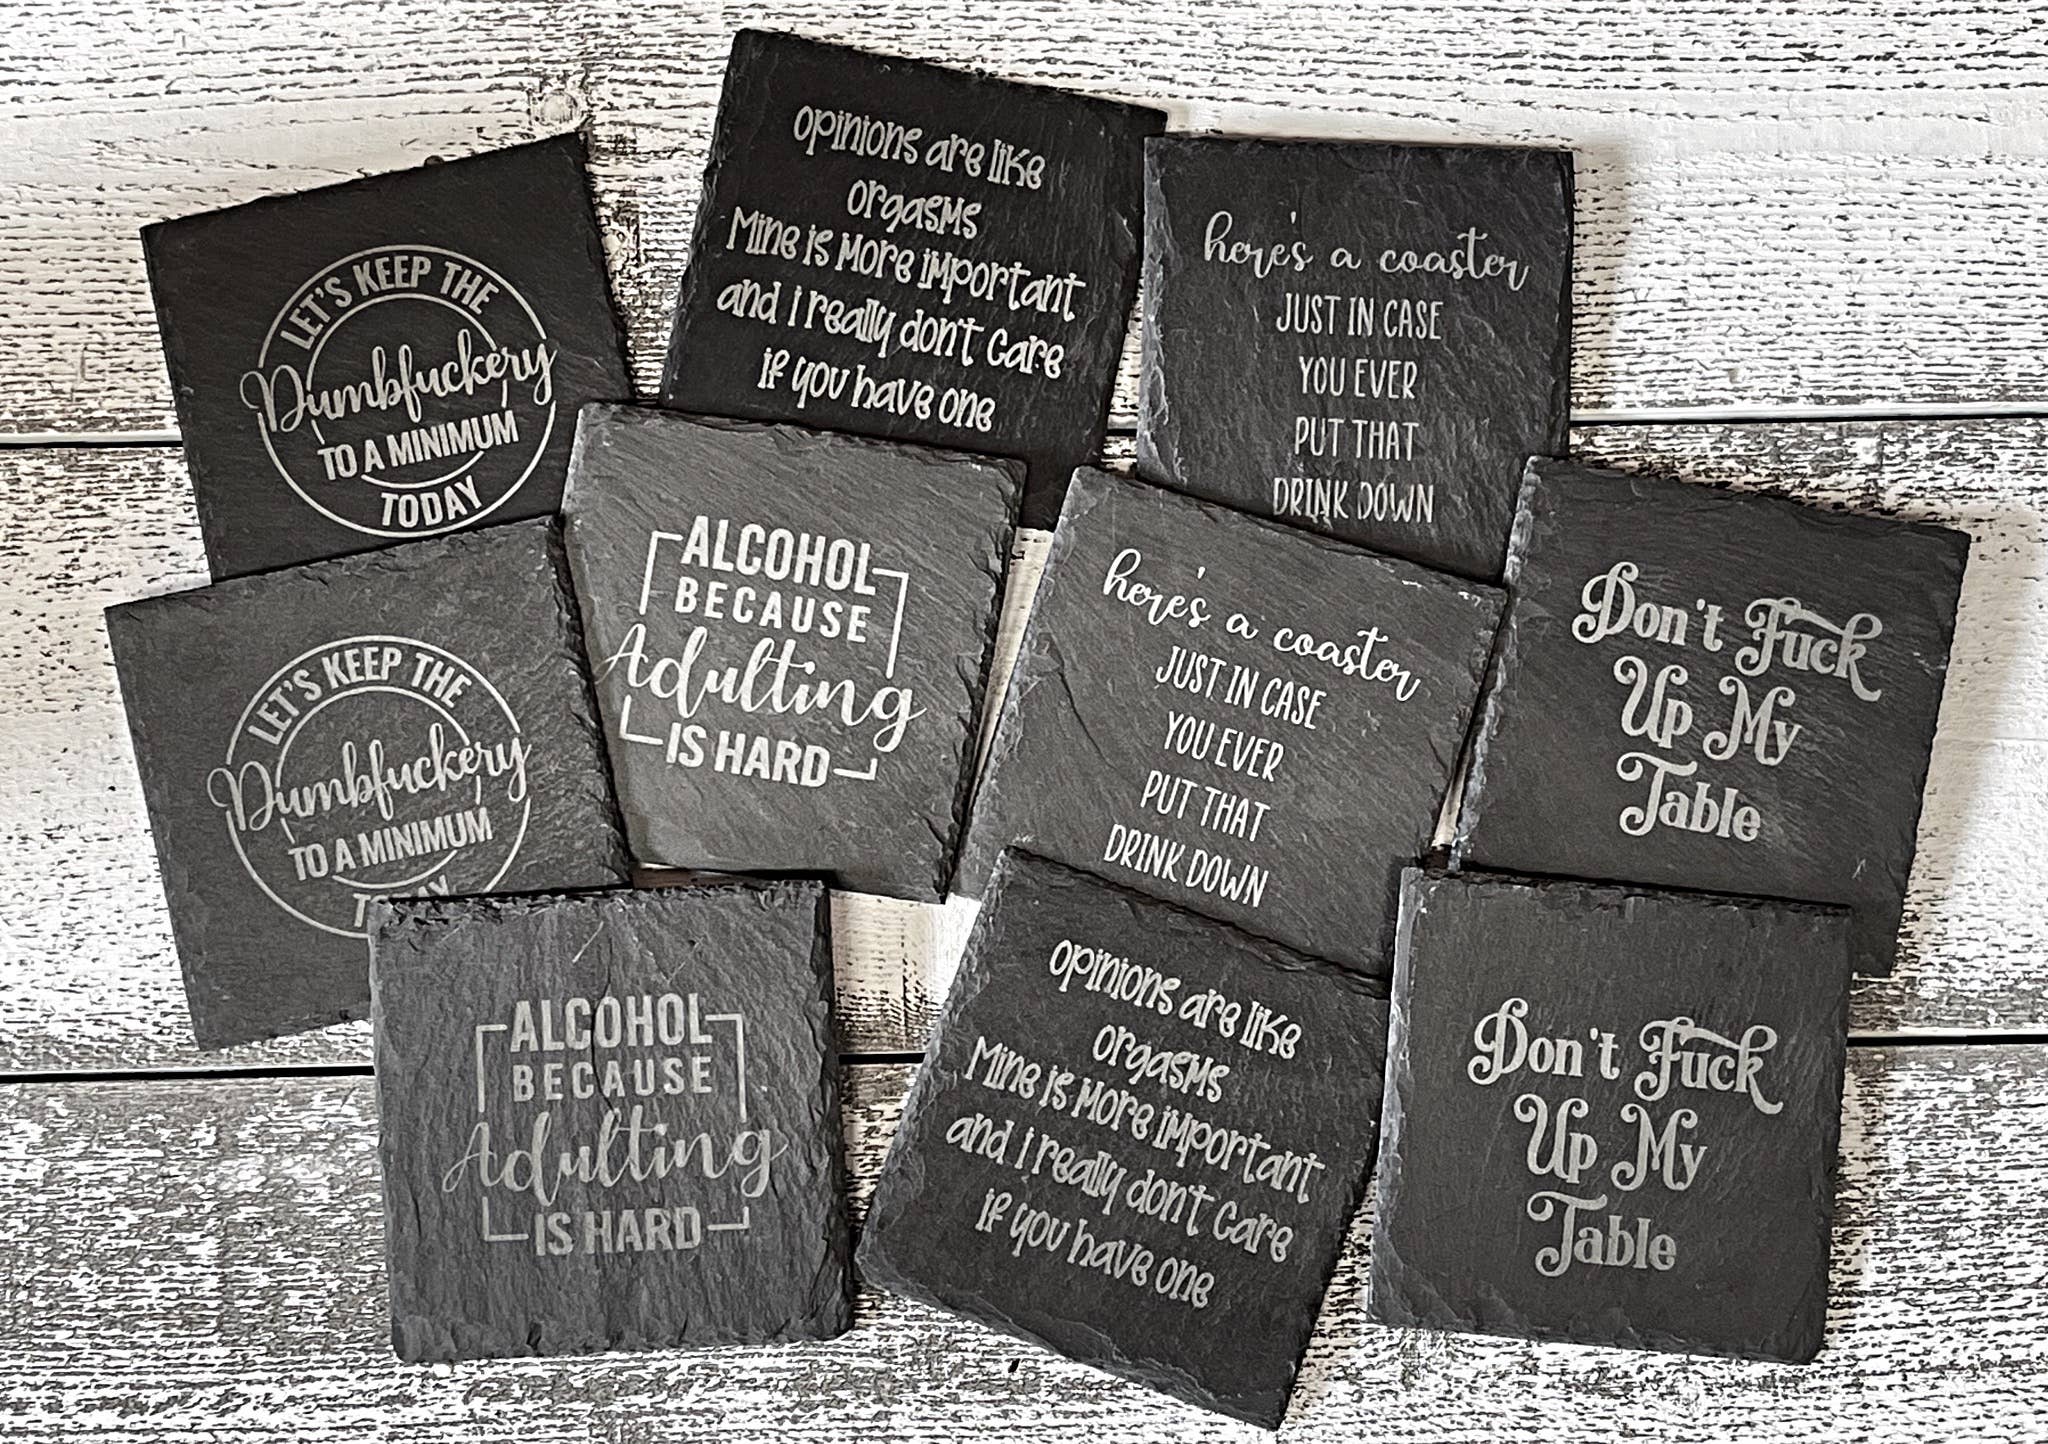 LET'S KEEP THE
Dumbfuckery
TO A MINIMUM
TODAY
Opinions are like
orgasms
Mine is more important
and i really don't care
if you have one
here's a coaster
JUST IN CASE
YOU EVER
PUT THAT
DRINK DOWN
LET'S KEEP THE
Dumbfuckery
TO A MINIMUM
TODAY
ALCOHOL
BECAUSE
Adulting
IS HARD
here's a coaster
JUST IN CASE
YOU EVER
PUT THAT
DRINK DOWN
Don't Fuck
Up My
Table
ALCOHOL
BECAUSE
Adulting
IS HARD
Opinions are like
orgasms
Mine is more important
and i really don't care
if you have one
Don't Fuck
Up My
Table